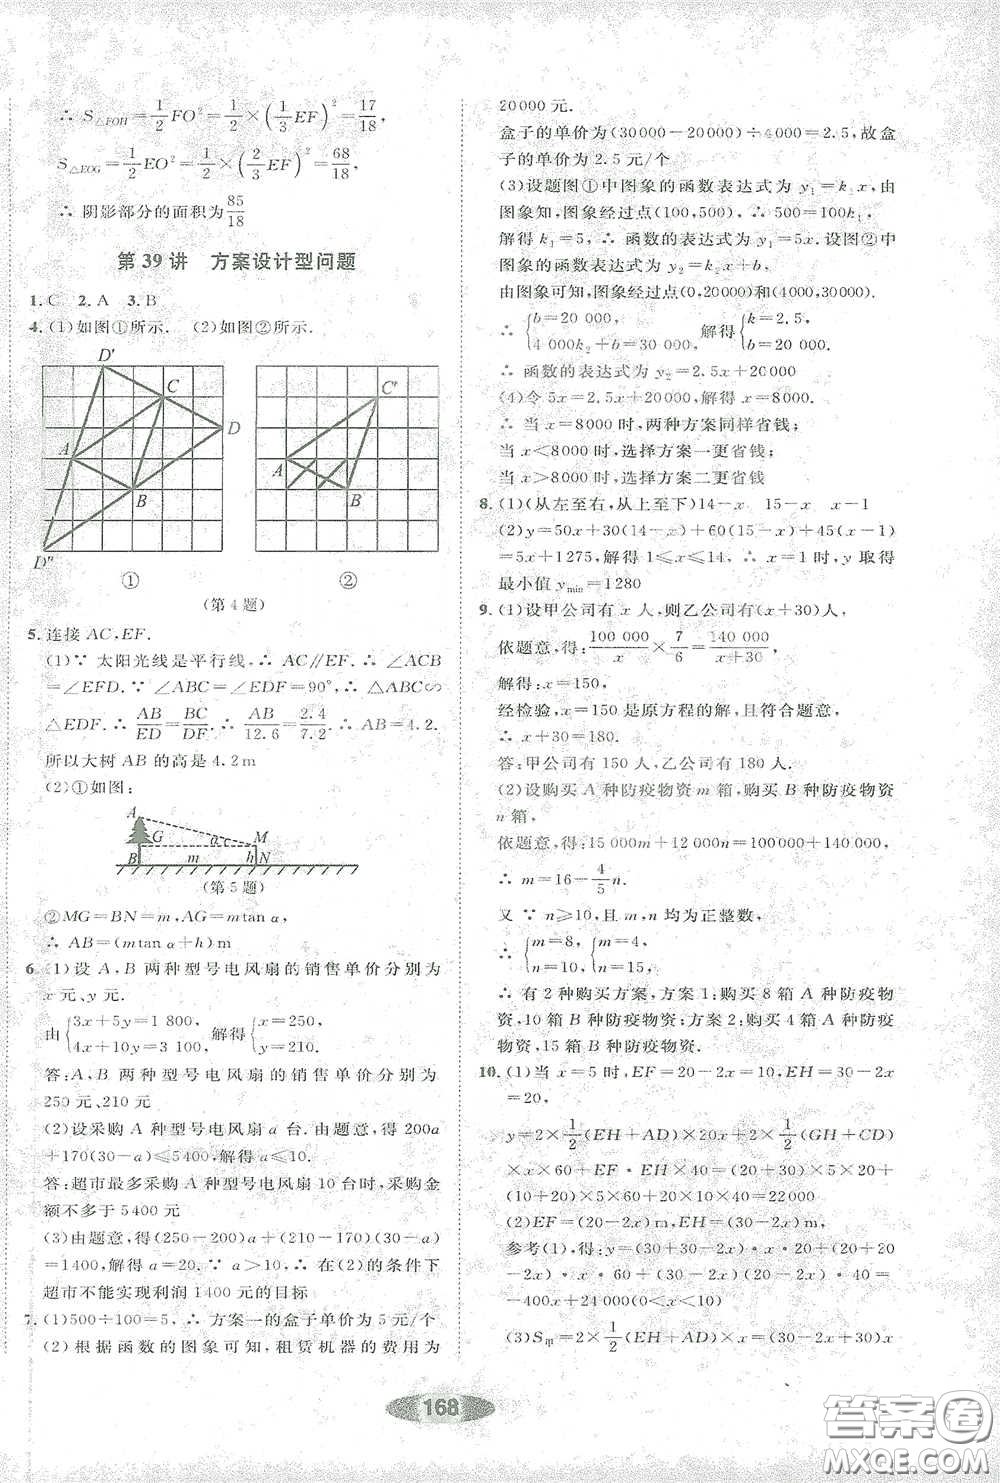 ∴ S△FOH=1/2FO²=1/2×(1/3EF)²=17/18,
S△EOG=1/2EO²=1/2×(2/3EF)²=68/18,
∴ 阴影部分的面积为85/18
第 39 讲 方案设计型问题
1. C 2. A 3. B
4. (1)如图①所示. (2)如图②所示.
D′
C
C′
D
A
A
B
B
D″
① ②
(第 4 题)
5. 连接 AC,EF.
(1)∵ 太阳光线是平行线,∴ AC∥EF.∴ ∠ACB
=∠EFD.∵ ∠ABC=∠EDF=90°,∴ △ABC∽
△EDF.∴ AB/ED=BC/DF.∴ AB/12.6=2.4/7.2.∴ AB=4.2.
所以大树 AB 的高是 4.2 m
(2)①如图:
A
G α c M
B m h N
(第 5 题)
②MG=BN=m,AG=mtan α,
∴ AB=(mtan α+h)m
6. (1)设 A、B 两种型号电风扇的销售单价分别为
x 元、y 元.
由{3x+5y=1 800, 解得{x=250,
4x+10y=3 100, y=210.
答:A、B 两种型号电风扇的销售单价分别为
250 元、210 元
(2)设采购 A 种型号电风扇 a 台.由题意,得 200a
+170(30-a)≤5400,解得 a≤10.
答:超市最多采购 A 种型号电风扇 10 台时,采购金
额不多于 5400 元
(3)由题意,得(250-200)a+(210-170)(30-a)
=1400,解得 a=20.∵ a>10,∴ 在(2)的条件下
超市不能实现利润 1400 元的目标
7. (1)500÷100=5,∴ 方案一的盒子单价为 5 元/个
(2)根据函数的图象可知,租赁机器的费用为
20000 元.
盒子的单价为(30000-20000)÷4000=2.5,故盒
子的单价为 2.5 元/个
(3)设题图①中图象的函数表达式为 y₁=k₁x,由
图象知,图象经过点(100,500),∴ 500=100k₁,
解得 k₁=5,∴ 函数的表达式为 y₁=5x.设图②中
图象的函数表达式为 y₂=k₂x+b,
由图象可知,图象经过点(0,20000)和(4000,30000),
∴ {b=20 000, 解得{k=2.5,
4 000k₂+b=30 000, b=20 000,
∴ 函数的表达式为 y₂=2.5x+20000
(4)令 5x=2.5x+20000,解得 x=8000,
∴ 当 x=8000 时,两种方案同样省钱;
当 x<8000 时,选择方案一更省钱;
当 x>8000 时,选择方案二更省钱
8. (1)(从左至右,从上至下)14-x 15-x x-1
(2)y=50x+30(14-x)+60(15-x)+45(x-1)
=5x+1275,解得 1≤x≤14,∴ x=1 时,y 取得
最小值 ymin=1280
9. (1)设甲公司有 x 人,则乙公司有(x+30)人,
依题意,得:100 000/x×7/6=140 000/(x+30),
解得:x=150,
经检验,x=150 是原方程的解,且符合题意,
∴ x+30=180.
答:甲公司有 150 人,乙公司有 180 人.
(2)设购买 A 种防疫物资 m 箱,购买 B 种防疫物资
n 箱,
依题意,得:15 000m+12 000n=100 000+140 000,
∴ m=16-4/5n.
又 ∵ n≥10,且 m,n 均为正整数,
∴ {m=8, {m=4,
n=10, n=15,
∴ 有 2 种购买方案,方案 1:购买 8 箱 A 种防疫物
资,10 箱 B 种防疫物资;方案 2:购买 4 箱 A 种防疫
物资,15 箱 B 种防疫物资.
10. (1)当 x=5 时,EF=20-2x=10,EH=30-2x
=20,
y=2×1/2(EH+AD)×20x+2×1/2(GH+CD)
×x×60+EF·EH×40=(20+30)×5×20+
(10+20)×5×60+20×10×40=22000
(2)EF=(20-2x)m,EH=(30-2x)m,
参考(1),得:y=(30+30-2x)·x·20+(20+
20-2x)·x·60+(30-2x)(20-2x)·40=
-400x+24000(0<x<10)
(3)S甲=2×1/2(EH+AD)×x=(30-2x+30)x
168
答案圈
MXQE.COM